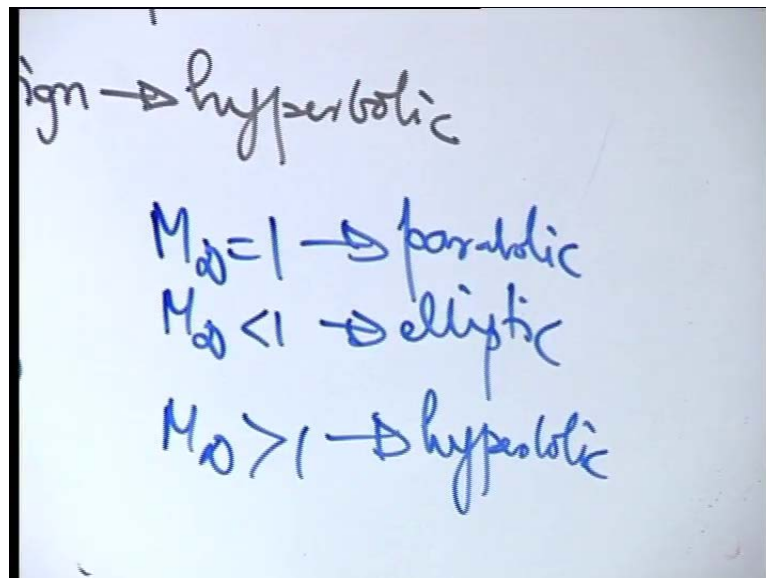 ign → hyperbolic
M∞ = 1 → parabolic
M∞ < 1 → elliptic
M∞ > 1 → hyperbolic